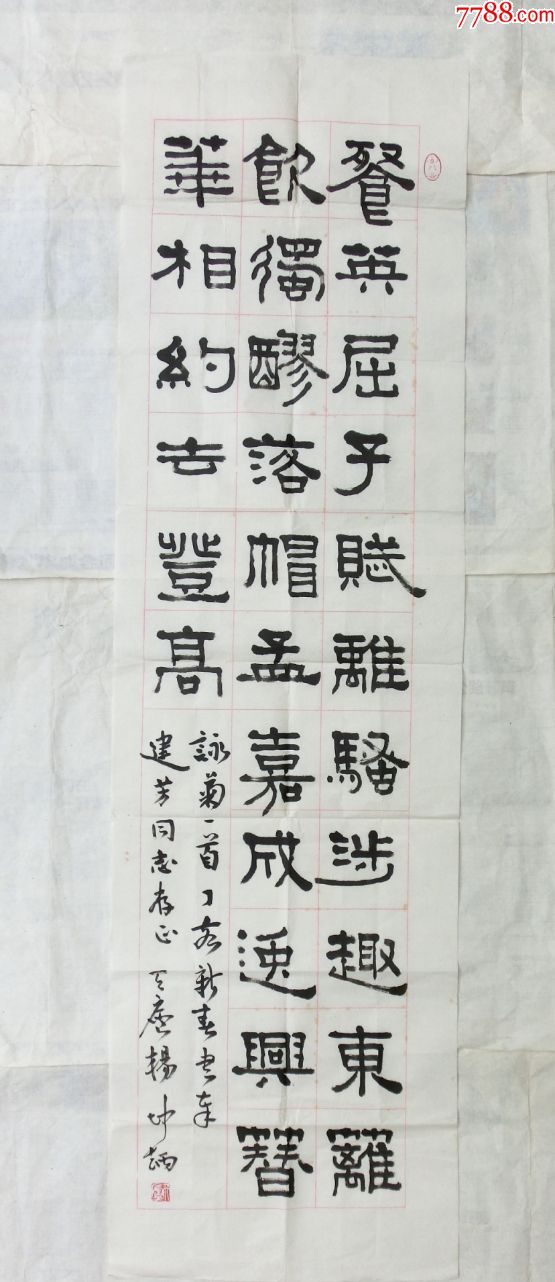 餐英屈子賦離騷涉趣東籬
飲濁醪落帽孟嘉成逸興簪
華相約去登高
詠菊一首 丁卯新春書奉
建芳同志存正 楊
7788.com